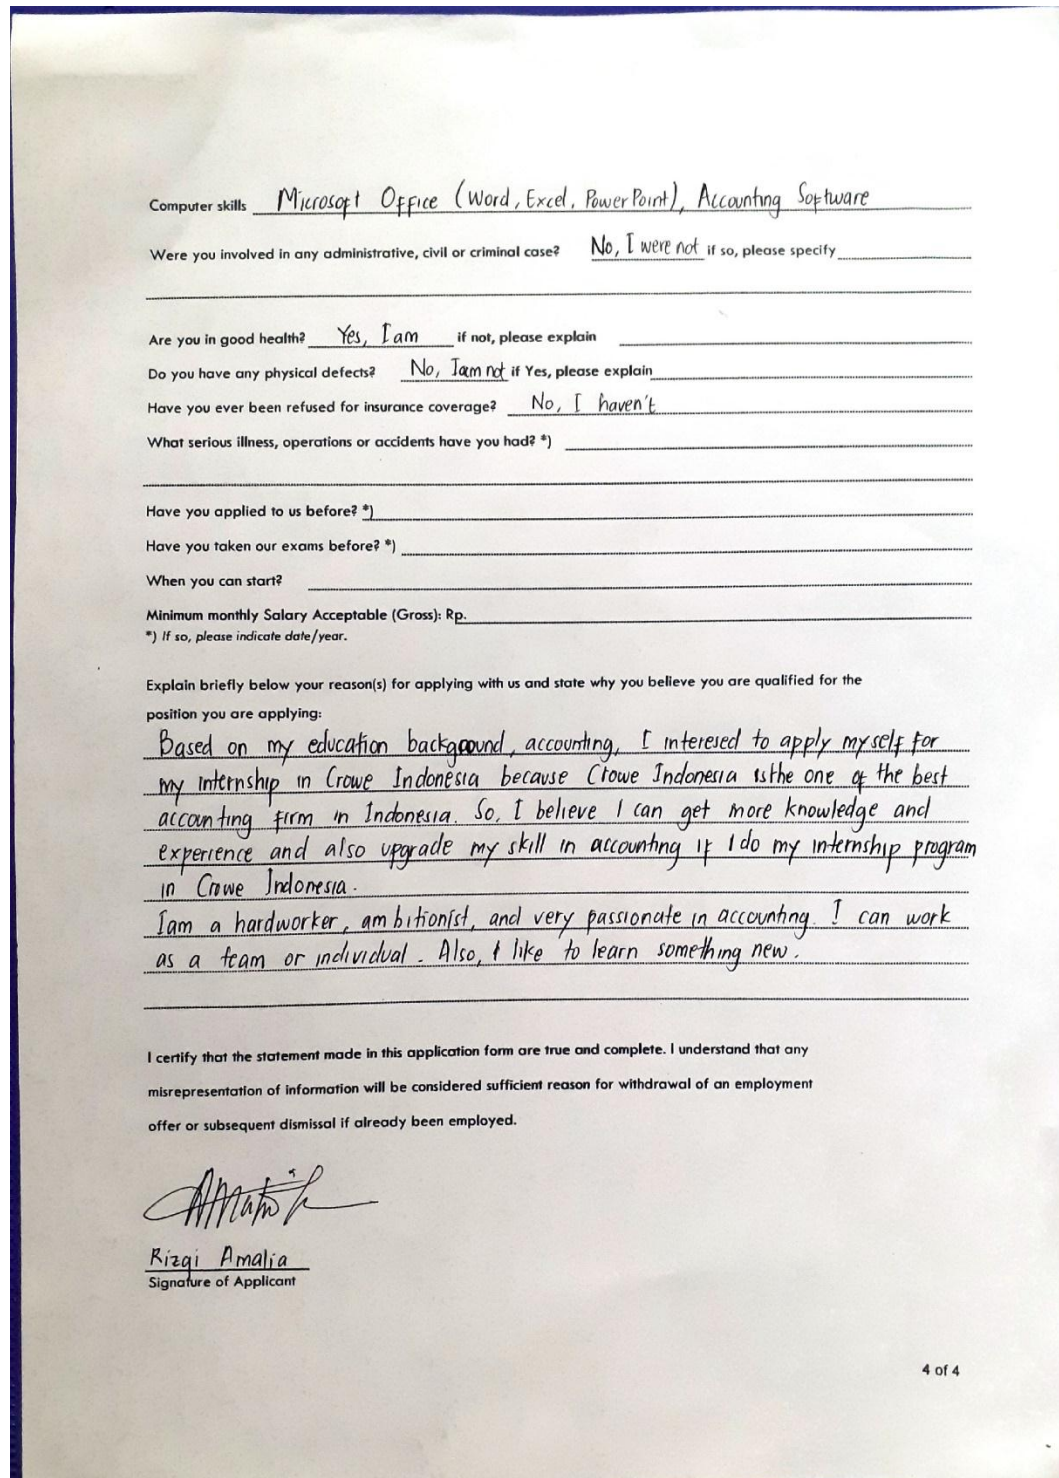 Computer skills Microsoft Office (Word, Excel, PowerPoint), Accounting Software
Were you involved in any administrative, civil or criminal case? No, I were not if so, please specify
Are you in good health? Yes, I am if not, please explain
Do you have any physical defects? No, I am not if Yes, please explain
Have you ever been refused for insurance coverage? No, I haven't
What serious illness, operations or accidents have you had? *)
Have you applied to us before? *)
Have you taken our exams before? *)
When you can start?
Minimum monthly Salary Acceptable (Gross): Rp.
*) If so, please indicate date/year.
Explain briefly below your reason(s) for applying with us and state why you believe you are qualified for the
position you are applying:
Based on my education background, accounting, I interesed to apply myself for
my internship in Crowe Indonesia because Crowe Indonesia is the one of the best
accounting firm in Indonesia. So, I believe I can get more knowledge and
experience and also upgrade my skill in accounting if I do my internship program
in Crowe Indonesia.
I am a hardworker, ambitionist, and very passionate in accounting. I can work
as a team or individual. Also, I like to learn something new.
I certify that the statement made in this application form are true and complete. I understand that any
misrepresentation of information will be considered sufficient reason for withdrawal of an employment
offer or subsequent dismissal if already been employed.
Rizqi Amalia
Signature of Applicant
4 of 4